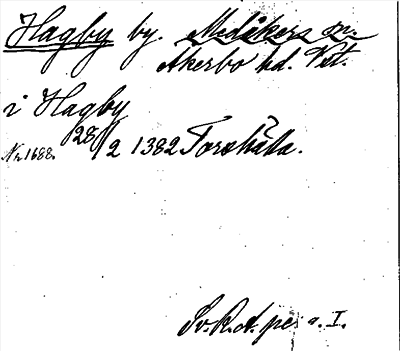 Hagby by. Medåkers sn.
Åkerbo hd. Vstl.
i Hagby
Nr. 1688. 28/2 1382 Torshälla.
Sv. R. A. pe. a. I.